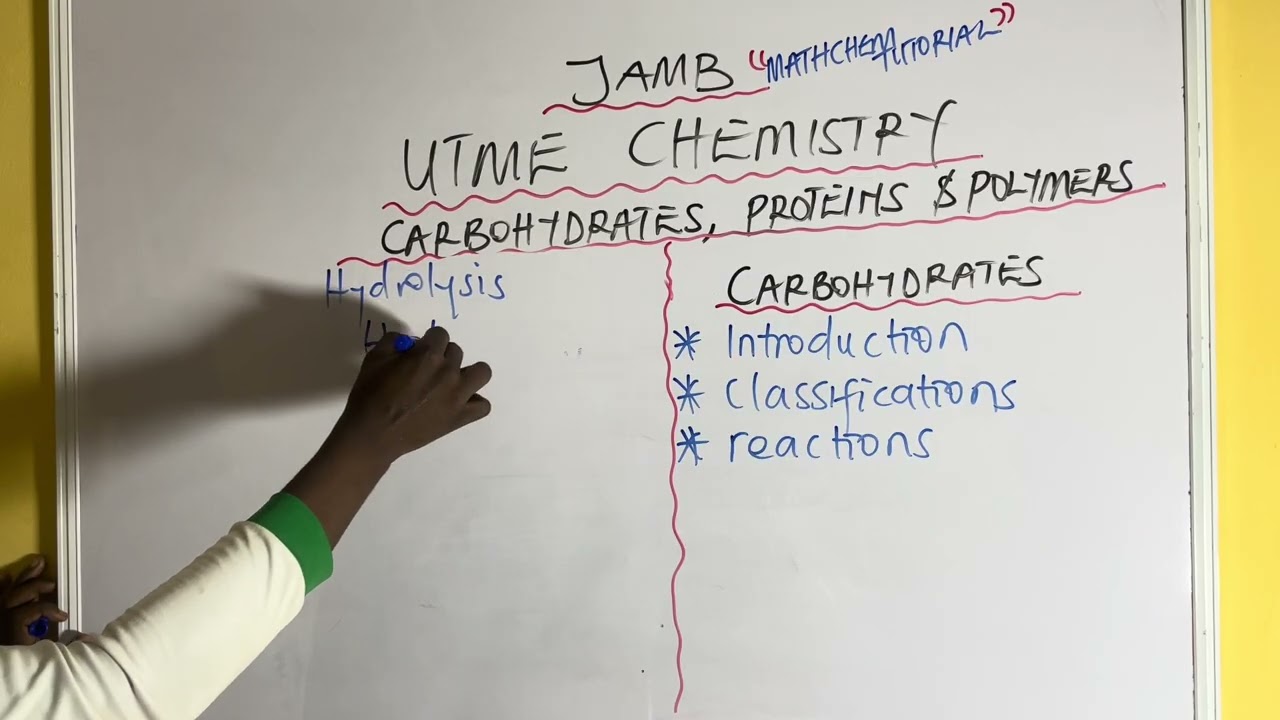 JAMB "MATHCHEM TUTORIAL"
UTME CHEMISTRY
CARBOHYDRATES, PROTEINS & POLYMERS
Hydrolysis
CARBOHYDRATES
* Introduction
* Classifications
* reactions